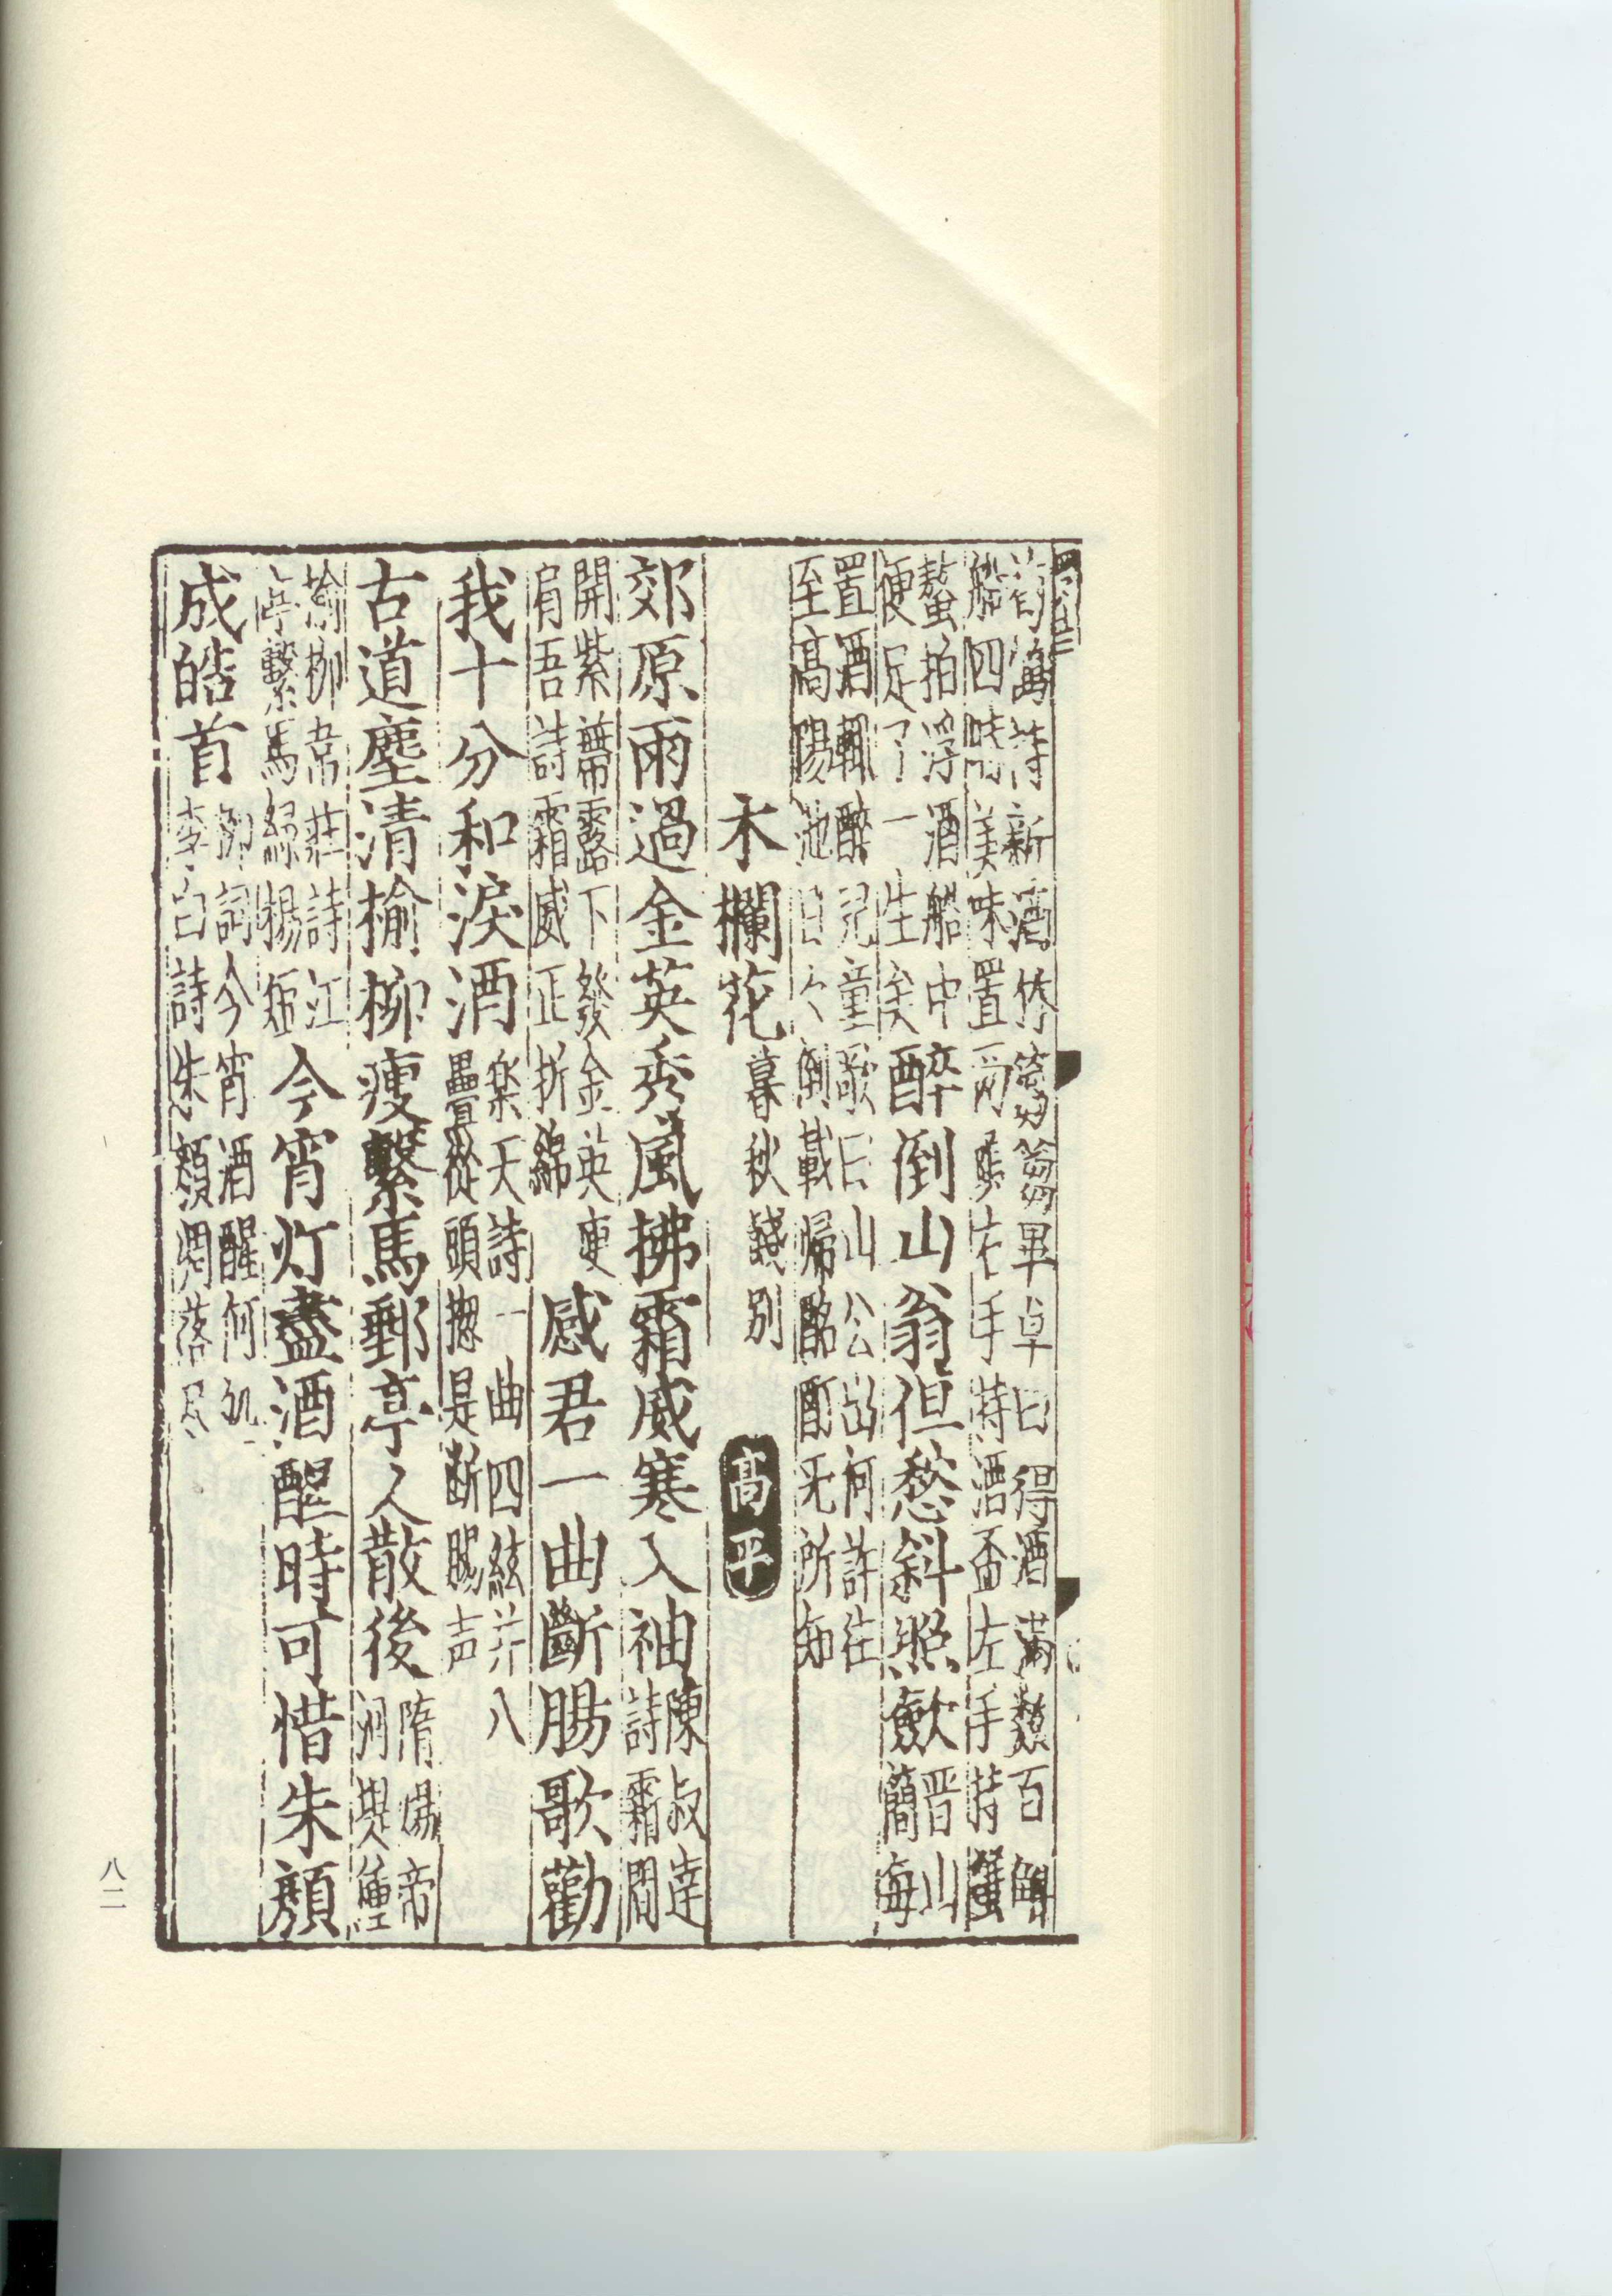 荀鶴詩新酒竹篘篘畢卓曰得酒滿數百斛
船四時美味置兩頭右手持酒盃左手持蟹
螯拍浮酒船中
便足了一生矣
醉倒山翁但愁斜照歛
晋山
簡每
置酒輒醉兒童歌曰山公出何許往
至高陽池日夕倒載歸酩酊无所知
木欄花 暮秋餞別 高平
郊原雨過金英秀風拂霜威寒入袖
陳叔達
詩霜間
開紫蔕露下發金英 庾
肩吾詩霜威正折綿
感君一曲斷腸歌勸
我十分和淚酒
楽天詩一曲四絃并八
疊從頭摠是断腸声
古道塵清榆柳瘦繫馬郵亭人散後
隋煬帝
洲與種
榆柳韋莊詩江
亭繫馬緑楊短
今宵灯盡酒醒時可惜朱顔
成皓首
柳詞今宵酒醒何処
李白詩朱顔凋落尽
八二